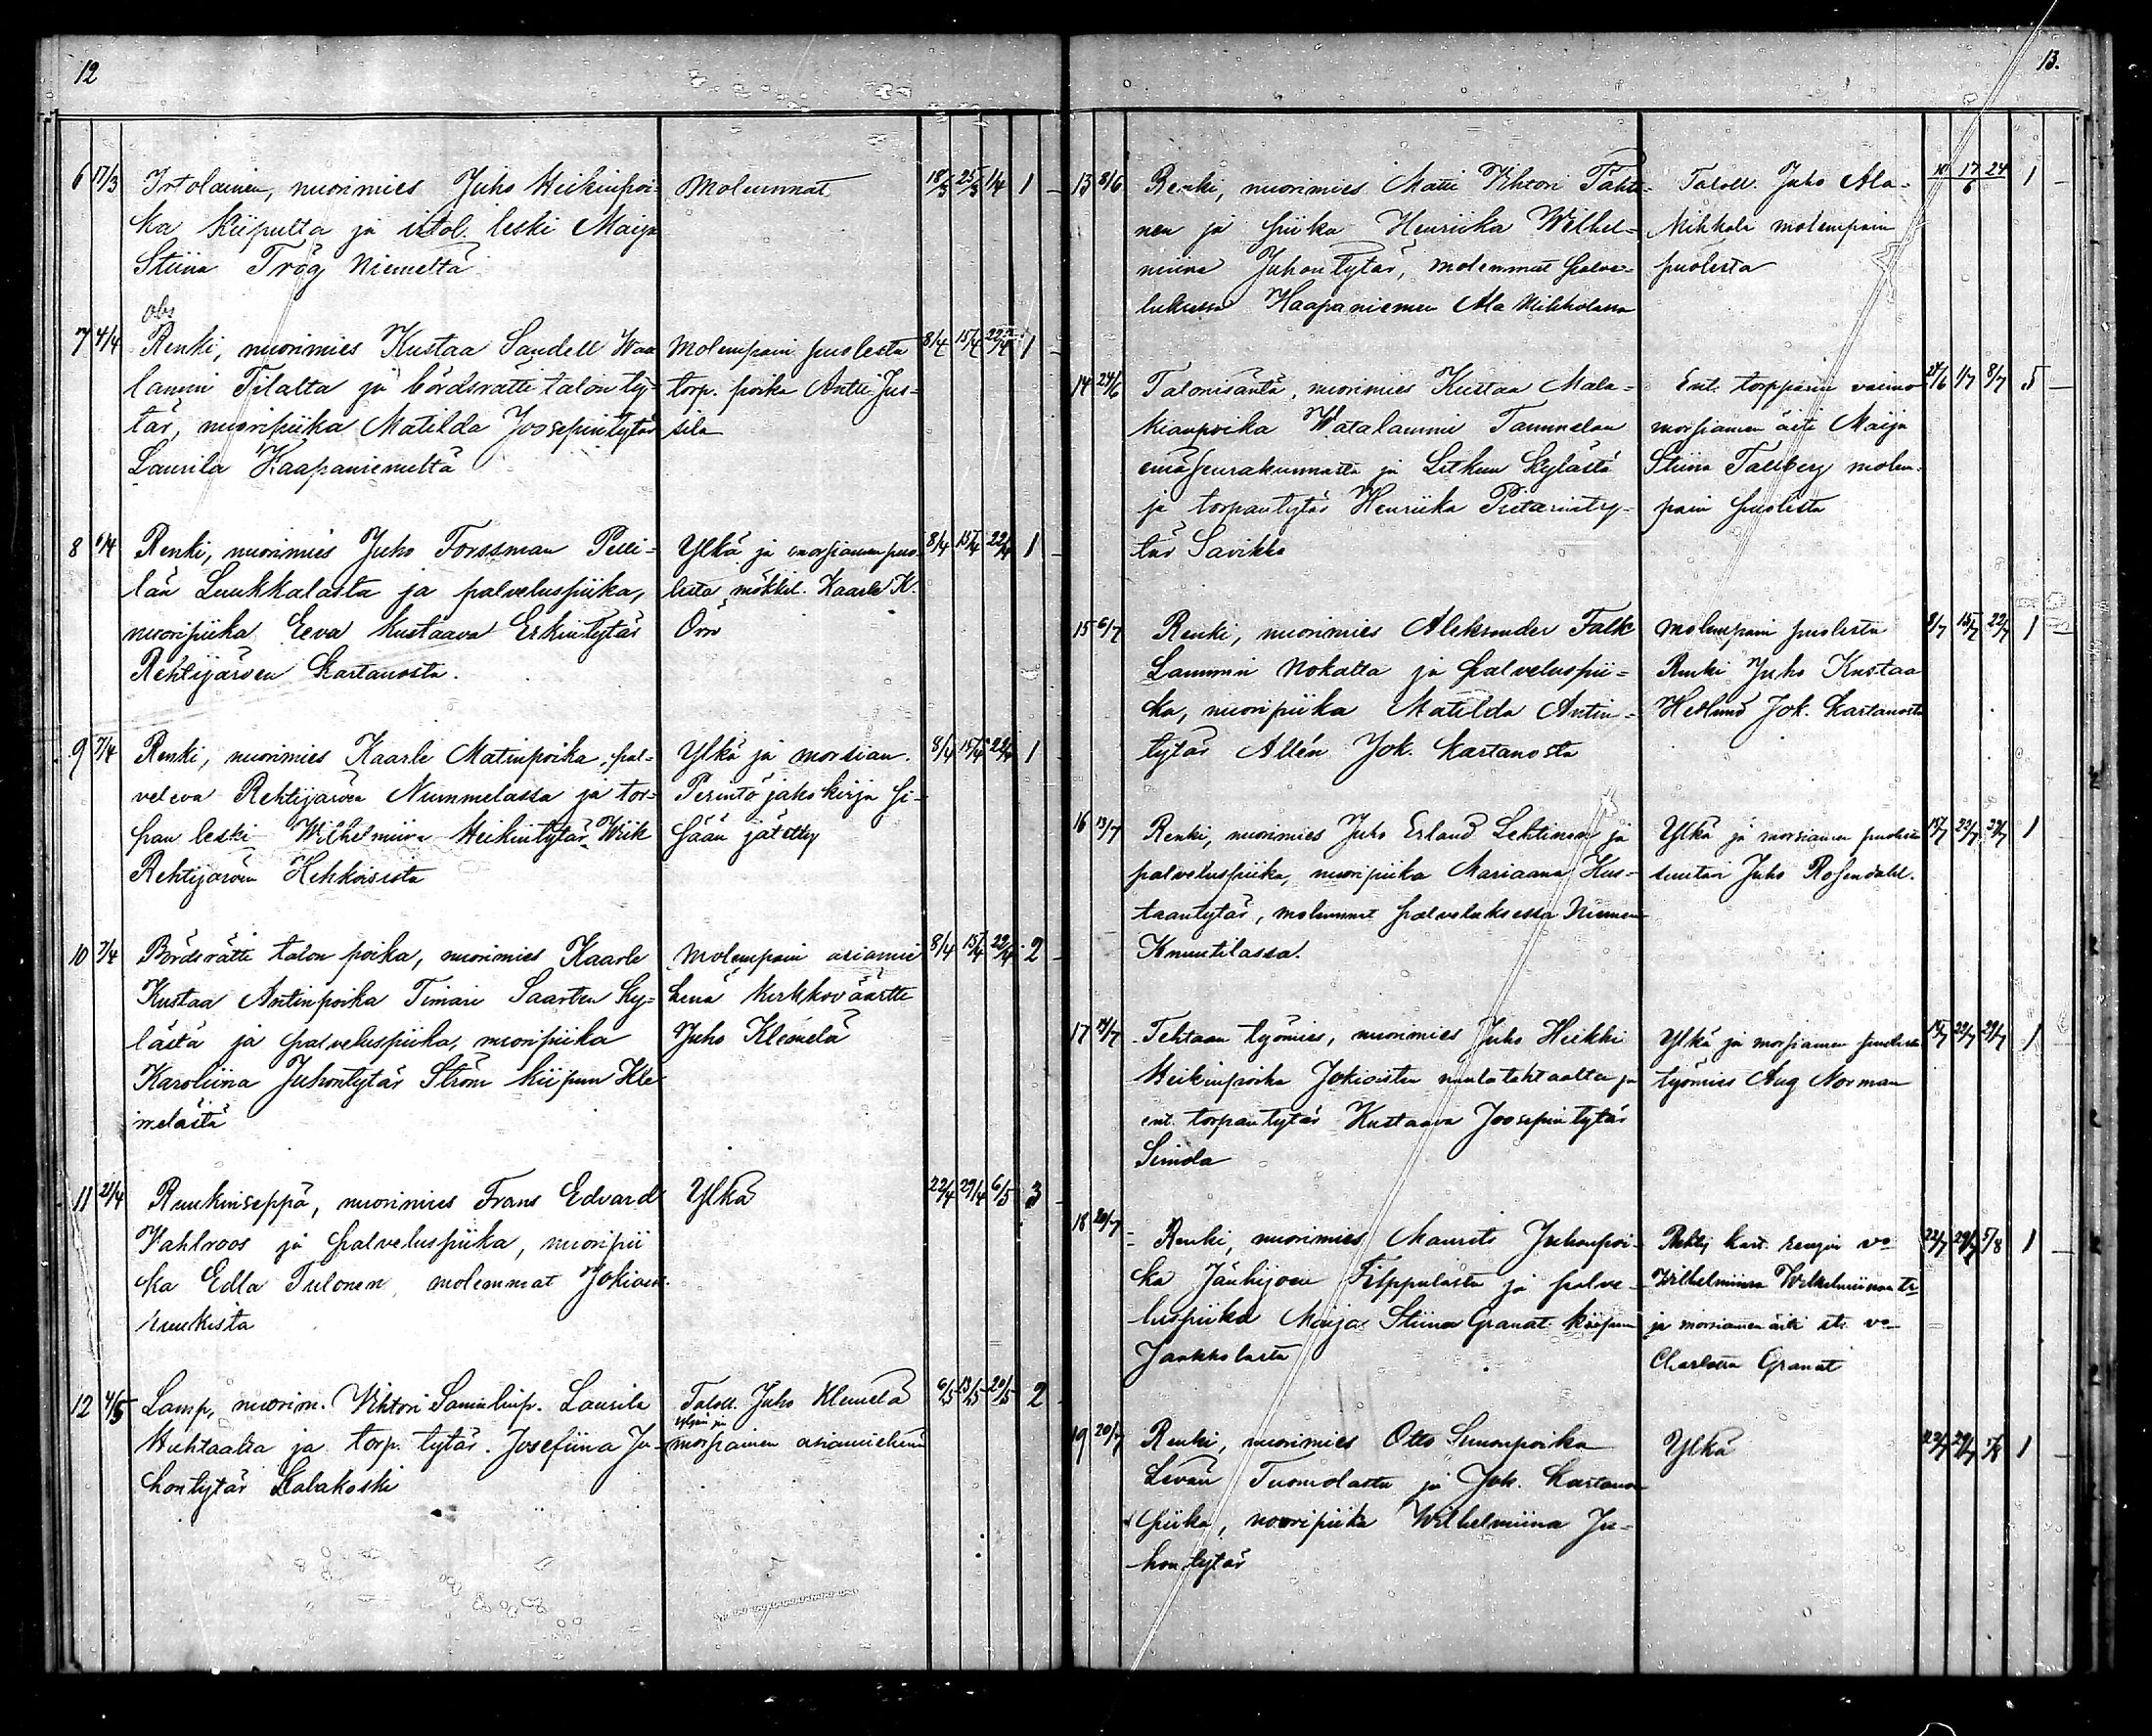 12
6 17/3 Irtolainen, nuorimies Juho Heikinpoi- Molemmat 18/3 25/3 1/4 1 -
ka Kiipulta ja irtol. leski Maija
Stiina Trög Niemeltä
obs
7 4/4 Renki, nuorimies Kustaa Sandell Waa Molempain puolesta 8/4 15/4 22/4 1 -
lammi Tilalta ja bördsrätti talon ty- torp. poika Antti Jus-
tär, nuoripiika Matilda Joosepintytär sila
Laurila Haapaniemeltä
8 6/4 Renki, nuorimies Juho Forssman Pelli- Ylkä ja morsiamen puo- 8/4 15/4 22/4 1
län Luukkalasta ja palveluspiika, lesta mökkil. Kaarle K.
nuoripiika Eeva Kustaava Erkintytär Örn
Rehtijärven Kartanosta.
9 7/4 Renki, nuorimies Kaarle Matinpoika, pal- Ylkä ja morsian. 8/4 15/4 22/4 1
veleva Rehtijärven Nummelassa ja tor- Perintö jakokirja si-
pan leski Wilhelmiina Heikintytär Wiik sään jätetty
Rehtijärven Hehkoisista
10 7/4 Bördsrätti talon poika, nuorimies Kaarle Molempain asiamie 8/4 15/4 22/4 2
Kustaa Antinpoika Timari Saarten Ky- henä kirkkoväärtti
lästä ja palveluspiika, nuoripiika Juho Klemelä
Karoliina Juhontytär Ström Kiipun Kle
melästä
11 21/4 Ruukinseppä, nuorimies Frans Edvard Ylkä 22/4 29/4 6/5 3 -
Wahlroos ja palveluspiika, nuoripii
ka Edla Tulonen, molemmat Jokioist.
ruukista
12 4/5 Lamp. nuorim. Vihtori Samulinp. Laurila Taloll. Juho Klemelä 6/5 13/5 20/5 2
yljän ja
Huhtaalta ja torp. tytär. Josefiina Ju- morsiamen asiamiehenä
hontytär Kalakoski
13.
13 8/6 Renki, nuorimies Matti Vihtori Tähti- Taloll. Juho Ala- 10 17/6 24 1 -
nen ja piika Henriika Wilhel- Mikkola molempain
miina Juhontytär, molemmat palve- puolesta
luksessa Haapaniemen Ala Mikkolassa
14 24/6 Talonisäntä, nuorimies Kustaa Mala- Ent. torpparin vaimo 24/6 1/7 8/7 5 -
kianpoika Watalammi Tammelan morsiamen äiti Maija
emäseurakunnasta ja Letkun Kylästä Stiina Tallberg molem-
ja torpantytär Henriika Pietarinty- pain puolesta
tär Savikko
15 6/7 Renki, nuorimies Aleksander Falk Molempain puolesta 8/7 15/7 22/7 1
Lammin Nokalta ja palveluspii- Renki Juho Kustaa
ka, nuoripiika Matilda Antin- Hedlund Jok. Kartanosta
tytär Allén Jok. Kartanosta
16 13/7 Renki, nuorimies Juho Erland Lehtinen ja Ylkä ja morsiamen puolesta 15/7 22/7 29/7 1
palveluspiika, nuoripiika Mariaana Kus- suutari Juho Rosendahl.
taantytär, molemmat palveluksessa Niemen
Knuutilassa.
17 14/7 Tehtaan työmies, nuorimies Juho Heikki Ylkä ja morsiamen puolesta 15/7 22/7 29/7 1
Heikinpoika Jokioisten naulatehtaalta ja työmies Aug Norman
ent. torpantytär Kustaava Joosepintytär
Simola
18 20/7 Renki, nuorimies Maurits Juhonpoi- Rehtij kart. rengin vo 22/7 29/7 5/8 1 -
ka Jänhijoen Filppulasta ja palve- Wilhelmiina Wilhelmiinantr
luspiika Maija Stiina Granat Kiipun ja morsiamen äiti vo
Jaakkolasta Charlotta Granat
19 20/7 Renki, nuorimies Otto Simonpoika Ylkä 22/7 29/7 5/8 1 -
Levän Tuomolasta ja Jok. Kartanon
piika, nuoripiika Wilhelmiina Ju-
hontytär